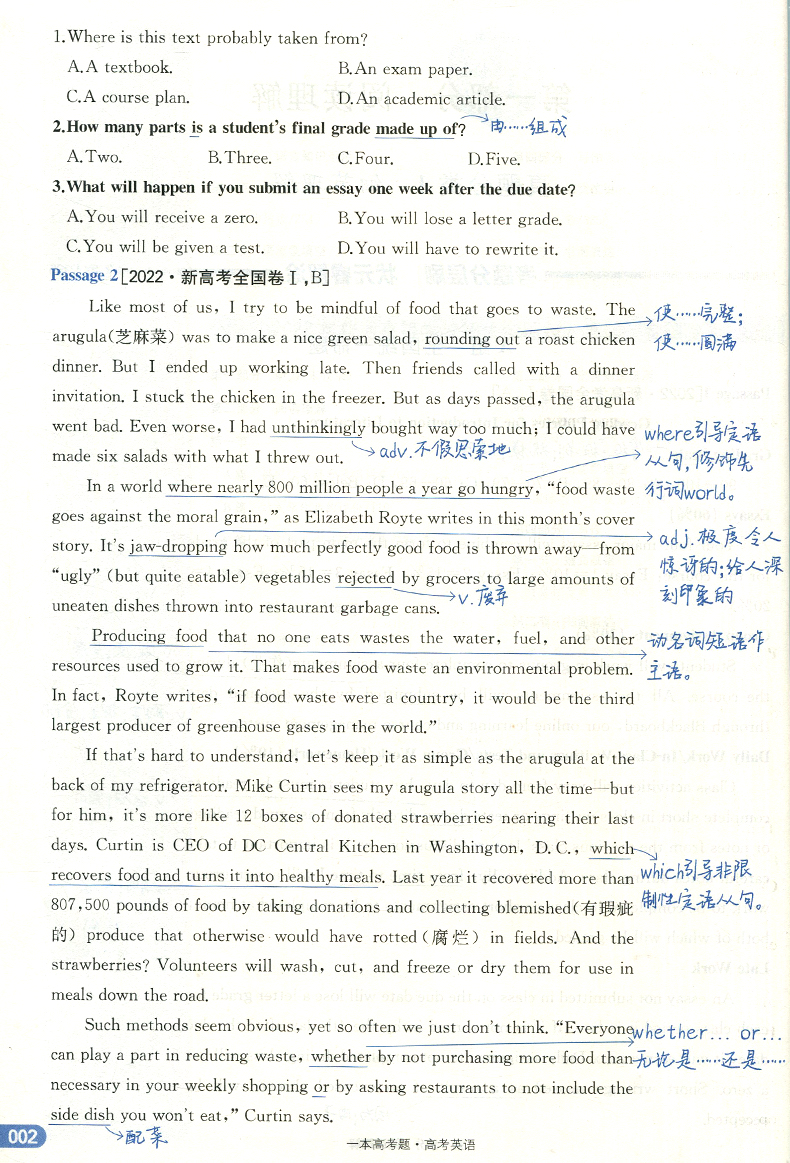 1.Where is this text probably taken from?
A.A textbook. B.An exam paper.
C.A course plan. D.An academic article.
2.How many parts is a student's final grade made up of? 由……组成
A.Two. B.Three. C.Four. D.Five.
3.What will happen if you submit an essay one week after the due date?
A.You will receive a zero. B.You will lose a letter grade.
C.You will be given a test. D.You will have to rewrite it.
Passage 2[2022·新高考全国卷Ⅰ,B]
Like most of us, I try to be mindful of food that goes to waste. The
arugula(芝麻菜) was to make a nice green salad, rounding out a roast chicken
dinner. But I ended up working late. Then friends called with a dinner
invitation. I stuck the chicken in the freezer. But as days passed, the arugula
went bad. Even worse, I had unthinkingly bought way too much; I could have
made six salads with what I threw out.
使……完整;
使……圆满
adv.不假思索地
In a world where nearly 800 million people a year go hungry, “food waste
goes against the moral grain,” as Elizabeth Royte writes in this month's cover
story. It's jaw-dropping how much perfectly good food is thrown away—from
“ugly” (but quite eatable) vegetables rejected by grocers to large amounts of
uneaten dishes thrown into restaurant garbage cans.
where引导定语
从句,修饰先
行词world。
adj.极度令人
惊讶的;给人深
刻印象的
v.废弃
Producing food that no one eats wastes the water, fuel, and other
resources used to grow it. That makes food waste an environmental problem.
In fact, Royte writes, “if food waste were a country, it would be the third
largest producer of greenhouse gases in the world.”
动名词短语作
主语。
If that's hard to understand, let's keep it as simple as the arugula at the
back of my refrigerator. Mike Curtin sees my arugula story all the time—but
for him, it's more like 12 boxes of donated strawberries nearing their last
days. Curtin is CEO of DC Central Kitchen in Washington, D.C., which
recovers food and turns it into healthy meals. Last year it recovered more than
807,500 pounds of food by taking donations and collecting blemished(有瑕疵
的) produce that otherwise would have rotted(腐烂) in fields. And the
strawberries? Volunteers will wash, cut, and freeze or dry them for use in
meals down the road.
which引导非限
制性定语从句。
Such methods seem obvious, yet so often we just don't think. “Everyone
can play a part in reducing waste, whether by not purchasing more food than
necessary in your weekly shopping or by asking restaurants to not include the
side dish you won't eat,” Curtin says.
whether... or...
无论是……还是……
配菜
002
一本高考题·高考英语